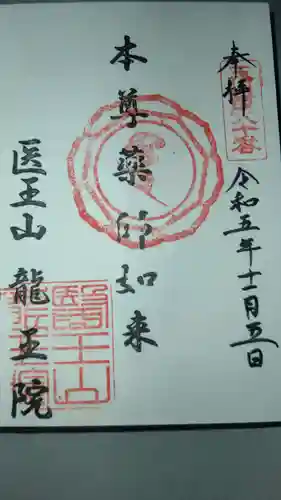 奉拝
令和五年十一月五日
本尊薬師如来
医王山
龍王院